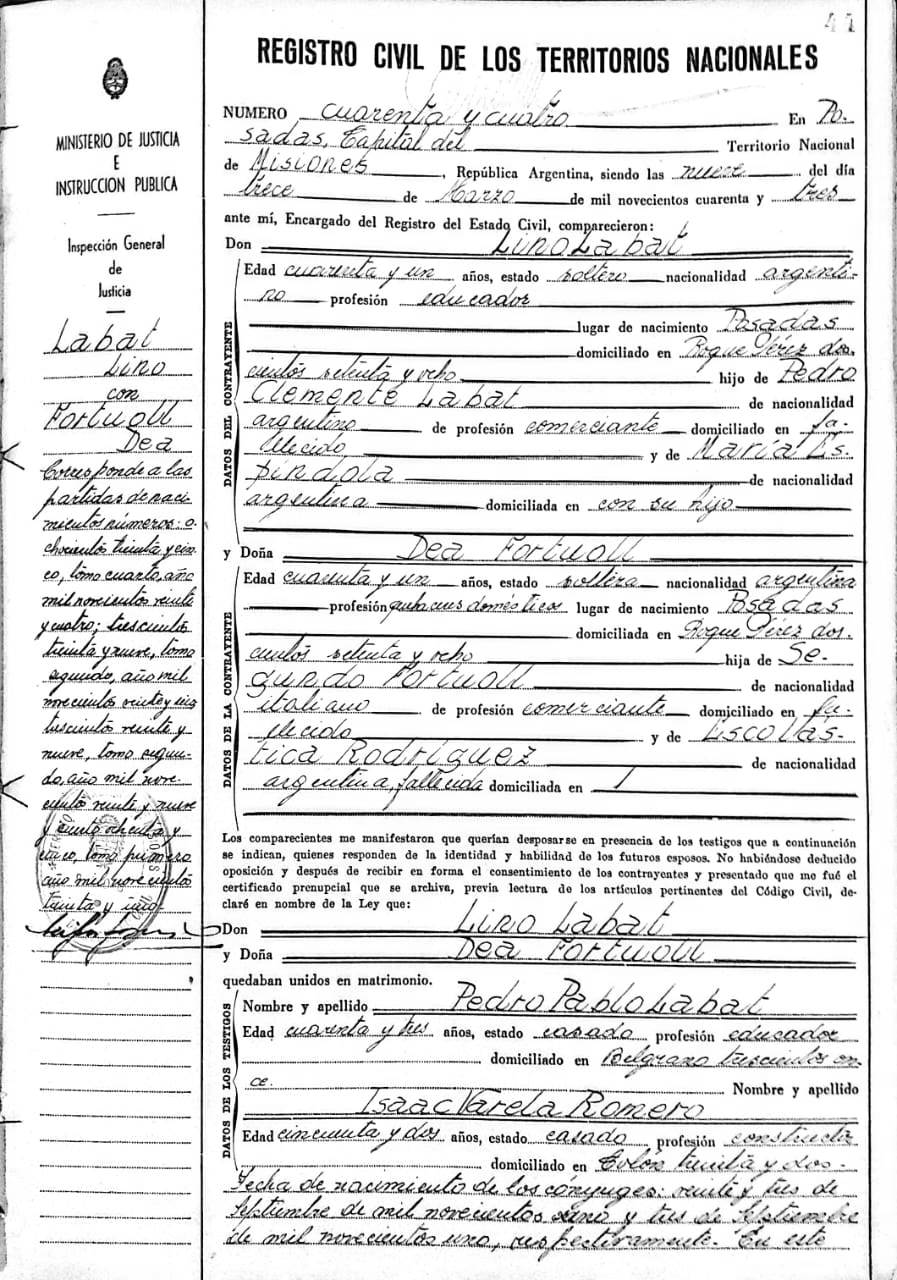 41
REGISTRO CIVIL DE LOS TERRITORIOS NACIONALES
MINISTERIO DE JUSTICIA
E
INSTRUCCION PUBLICA
Inspección General
de
Justicia
Labat
Lino
con
Fortuoll
Dea
Corresponde a las
partidas de naci
mientos números: o-
chocientos treinta y cin-
co, tomo cuarto, año
mil novecientos veinte
y cuatro; trescientos
treinta y nueve, tomo
segundo, año mil
novecientos veinte y
trescientos veinte y
nueve, tomo segun-
do, año mil nove-
cientos veinte y nueve
y ciento ochenta y
cinco, tomo primero
año mil novecientos
treinta y uno.
NUMERO cuarenta y cuatro En Po-
sadas, Capital del Territorio Nacional
de Misiones, República Argentina, siendo las nueve del día
trece de Marzo de mil novecientos cuarenta y tres
ante mí, Encargado del Registro del Estado Civil, comparecieron:
Don Lino Labat
DATOS DEL CONTRAYENTE
Edad cuarenta y un años, estado soltero nacionalidad argenti-
no profesión educador
lugar de nacimiento Posadas
domiciliado en Roque Pérez dos-
cientos setenta y ocho hijo de Pedro
Clemente Labat de nacionalidad
argentino de profesión comerciante domiciliado en fa-
llecido y de María Es-
píndola de nacionalidad
argentina domiciliada en con su hijo
y Doña Dea Fortuoll
DATOS DE LA CONTRAYENTE
Edad cuarenta y un años, estado soltera nacionalidad argentina
profesión quehaceres domésticos lugar de nacimiento Posadas
domiciliado en Roque Pérez dos-
cientos setenta y ocho hija de Se-
gundo Fortuoll de nacionalidad
italiano de profesión comerciante domiciliado en fa-
llecido y de Escolás-
tica Rodríguez de nacionalidad
argentina, fallecida domiciliada en /
Los comparecientes me manifestaron que querían desposarse en presencia de los testigos que a continuación
se indican, quienes responden de la identidad y habilidad de los futuros esposos. No habiéndose deducido
oposición y después de recibir en forma el consentimiento de los contrayentes y presentado que me fué el
certificado prenupcial que se archiva, previa lectura de los artículos pertinentes del Código Civil, de-
claré en nombre de la Ley que:
Don Lino Labat
y Doña Dea Fortuoll
quedaban unidos en matrimonio.
DATOS DE LOS TESTIGOS
Nombre y apellido Pedro Pablo Labat
Edad cuarenta y tres años, estado casado profesión educador
domiciliado en Belgrano trescientos on-
ce. Nombre y apellido
Isaac Varela Romero
Edad cincuenta y dos años, estado casado profesión constructor
domiciliado en Colón treinta y dos.
Fecha de nacimiento de los cónyuges: veinte y tres de
Septiembre de mil novecientos uno y tres de Septiembre
de mil novecientos uno, respectivamente. En este